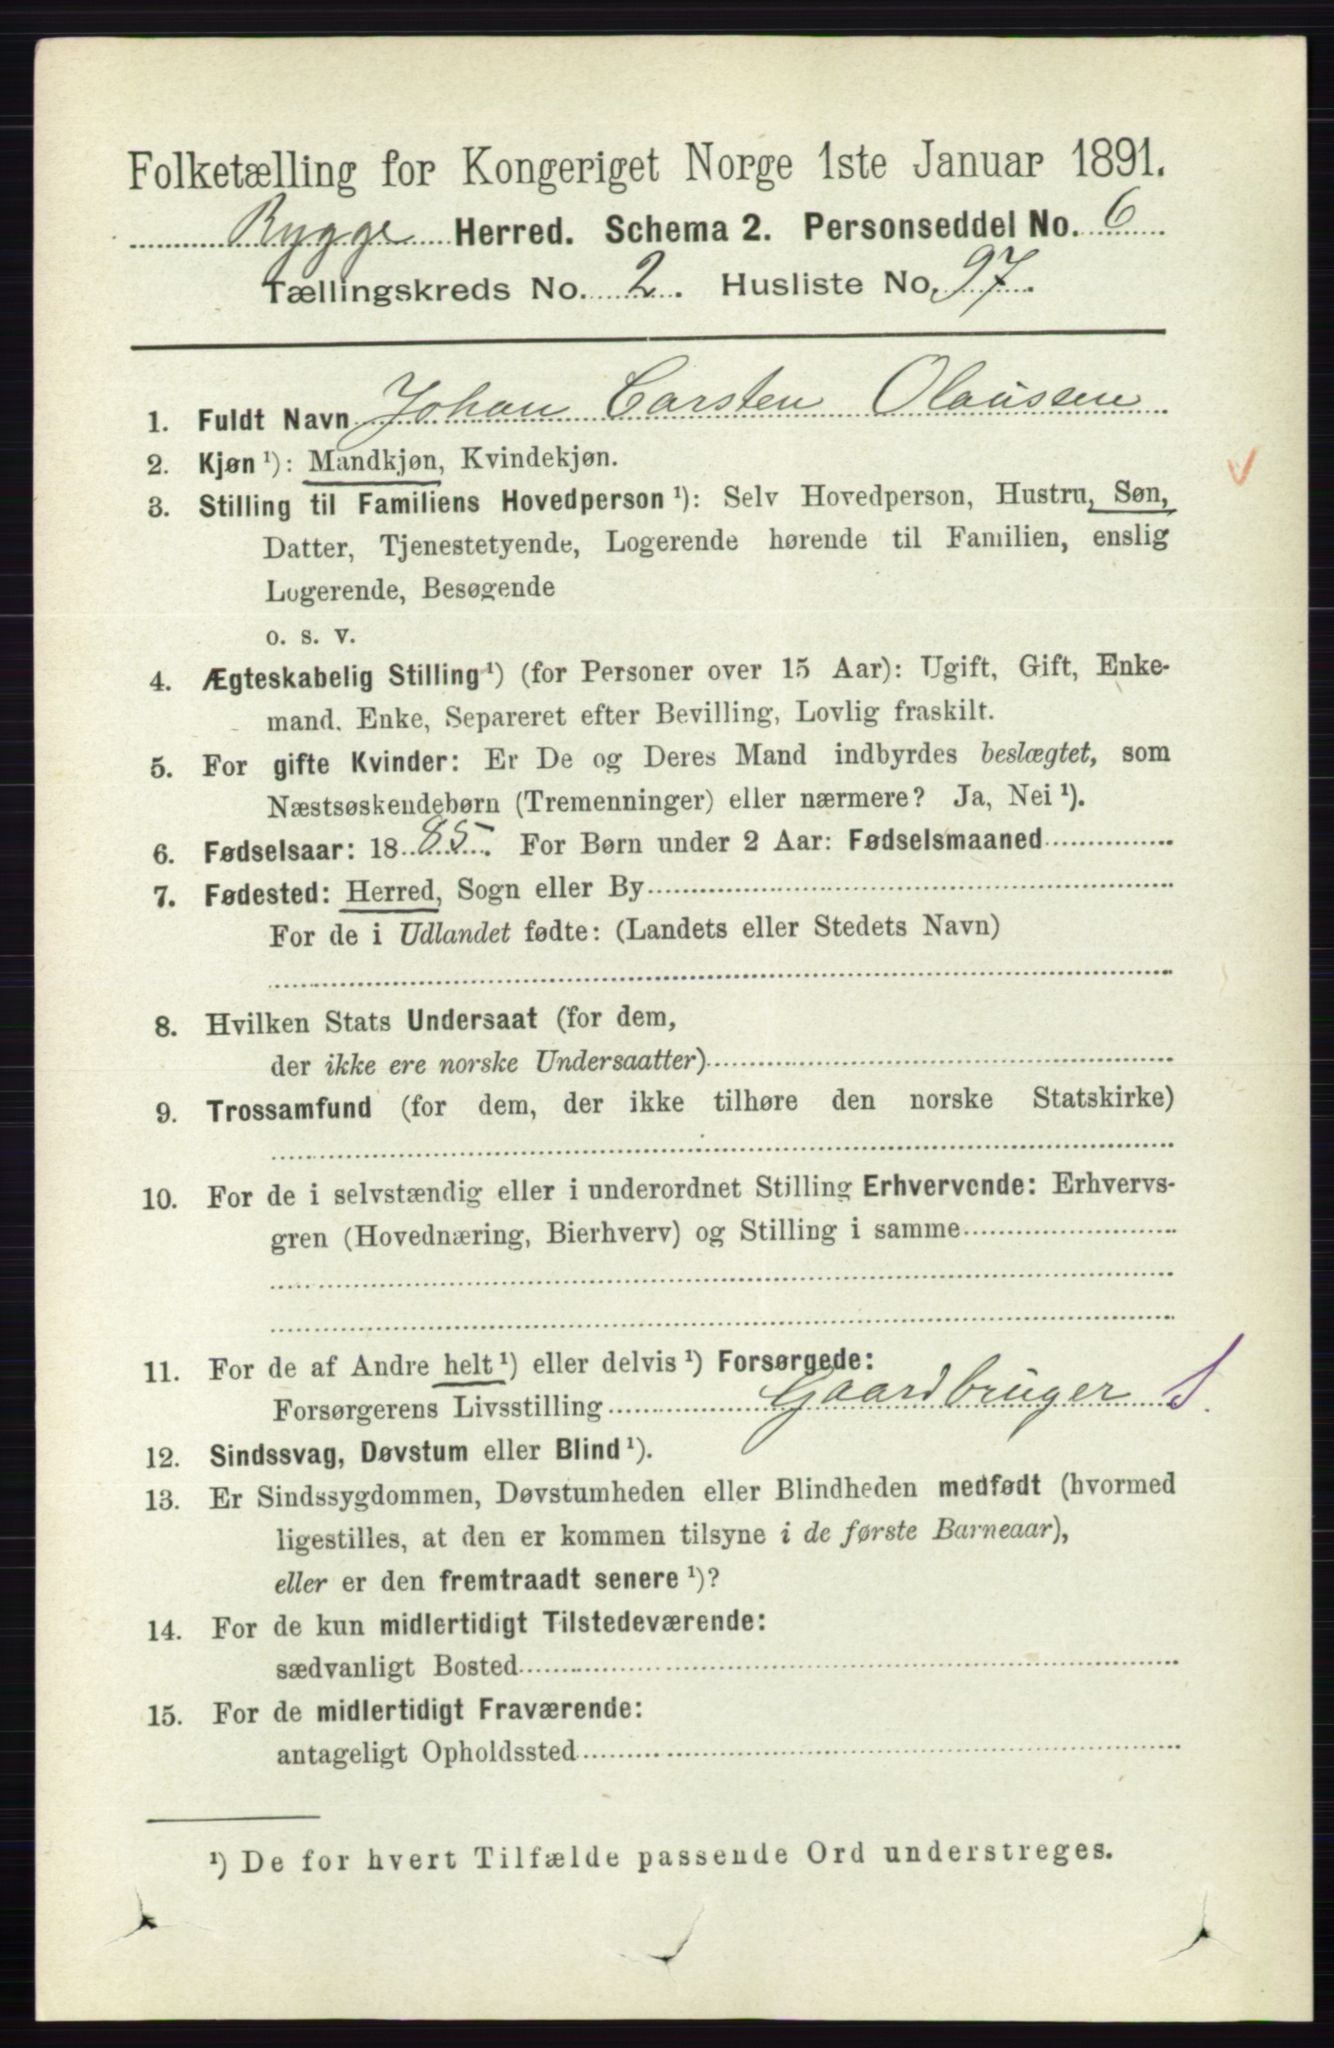 Folketælling for Kongeriget Norge 1ste Januar 1891.
Rygge Herred. Schema 2. Personseddel No. 6
Tællingskreds No. 2. Husliste No. 97.
1. Fuldt Navn Johan Carsten Olaüsen
2. Kjøn ¹): Mandkjøn, Kvindekjøn.
3. Stilling til Familiens Hovedperson ¹): Selv Hovedperson, Hustru, Søn,
Datter, Tjenestetyende, Logerende hørende til Familien, enslig
Logerende, Besøgende
o. s. v.
4. Ægteskabelig Stilling ¹) (for Personer over 15 Aar): Ugift, Gift, Enke-
mand, Enke, Separeret efter Bevilling, Lovlig fraskilt.
5. For gifte Kvinder: Er De og Deres Mand indbyrdes beslægtet, som
Næstsøskendebørn (Tremenninger) eller nærmere? Ja, Nei ¹).
6. Fødselsaar: 1885. For Børn under 2 Aar: Fødselsmaaned
7. Fødested: Herred, Sogn eller By
For de i Udlandet fødte: (Landets eller Stedets Navn)
8. Hvilken Stats Undersaat (for dem,
der ikke ere norske Undersaatter)
9. Trossamfund (for dem, der ikke tilhøre den norske Statskirke)
10. For de i selvstændig eller i underordnet Stilling Erhvervende: Erhvervs-
gren (Hovednæring, Bierhverv) og Stilling i samme
11. For de af Andre helt ¹) eller delvis ¹) Forsørgede:
Forsørgerens Livsstilling Gaardbrüger S.
12. Sindssvag, Døvstum eller Blind ¹).
13. Er Sindssygdommen, Døvstumheden eller Blindheden medfødt (hvormed
ligestilles, at den er kommen tilsyne i de første Barneaar),
eller er den fremtraadt senere ¹)?
14. For de kun midlertidigt Tilstedeværende:
sædvanligt Bosted
15. For de midlertidigt Fraværende:
antageligt Opholdssted
¹) De for hvert Tilfælde passende Ord understreges.